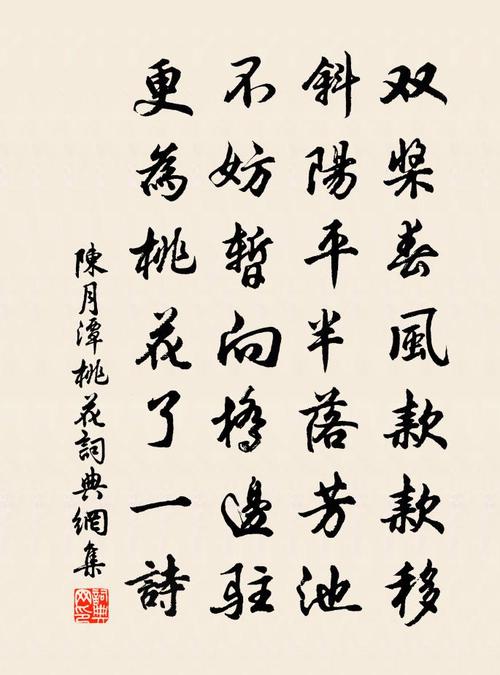 双槳春風款款移
斜陽平半落芳池
不妨暫向橋邊駐
更為桃花了一詩
陳月潭桃花詞典網集